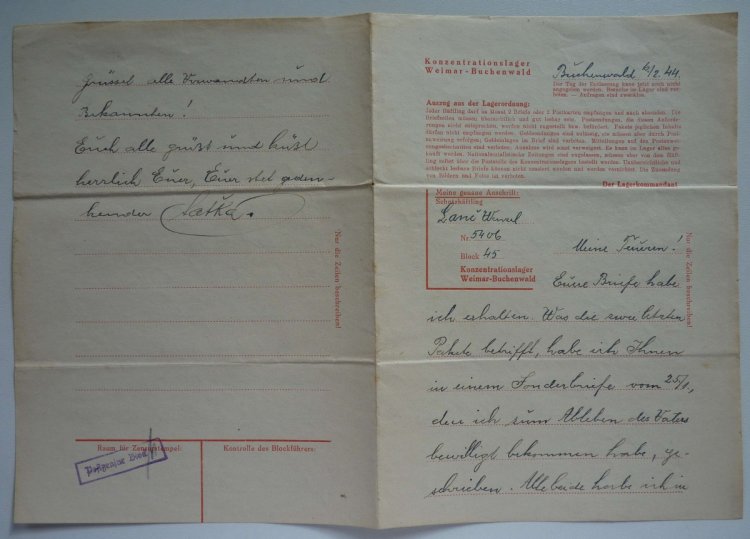 grüsset alle Verwandten und
Bekannten!
Euch alle grüst und küst
herzlich Euer, Euer stet geden-
kender
Nur die Zeilen beschreiben!
Raum für Zensurstempel:
Kontrolle des Blockführers:
Konzentrationslager
Weimar-Buchenwald
Buchenwald 6/2.44.
Der Tag der Entlassung kann jetzt noch nicht
angegeben werden. Besuche im Lager sind ver-
boten. — Anfragen sind zwecklos.
Auszug aus der Lagerordnung:
Jeder Häftling darf im Monat 2 Briefe oder 2 Postkarten empfangen und auch absenden. Die
Briefzeilen müssen übersichtlich und gut lesbar sein. Postsendungen, die diesen Anforde-
rungen nicht entsprechen, werden nicht zugestellt bzw. befördert. Pakete jeglichen Inhalts
dürfen nicht empfangen werden. Geldsendungen sind zulässig, sie müssen aber durch Post-
anweisung erfolgen; Geldeinlagen im Brief sind verboten. Mitteilungen auf den Postanwei-
sungsabschnitten sind verboten. Annahme wird sonst verweigert. Es kann im Lager alles ge-
kauft werden. Nationalsozialistische Zeitungen sind zugelassen, müssen aber von dem Häft-
ling selbst über die Poststelle des Konzentrationslagers bestellt werden. Unübersichtliche und
schlecht lesbare Briefe können nicht zensiert werden und werden vernichtet. Die Zusendung
von Bildern und Fotos ist verboten.
Der Lagerkommandant
Meine genaue Anschrift:
Schutzhäftling
Nr. 5406
Block 45
Konzentrationslager
Weimar-Buchenwald
Nur die Zeilen beschreiben!
Meine Teueren!
Euere Briefe habe
ich erhalten. Was die zwei letzten
Pakete betrifft, habe ich Ihnen
in einem Sonderbriefe vom 25/1,
den ich zum Ableben des Vaters
bewilligt bekommen habe, ge-
schrieben. Alle beide habe ich in